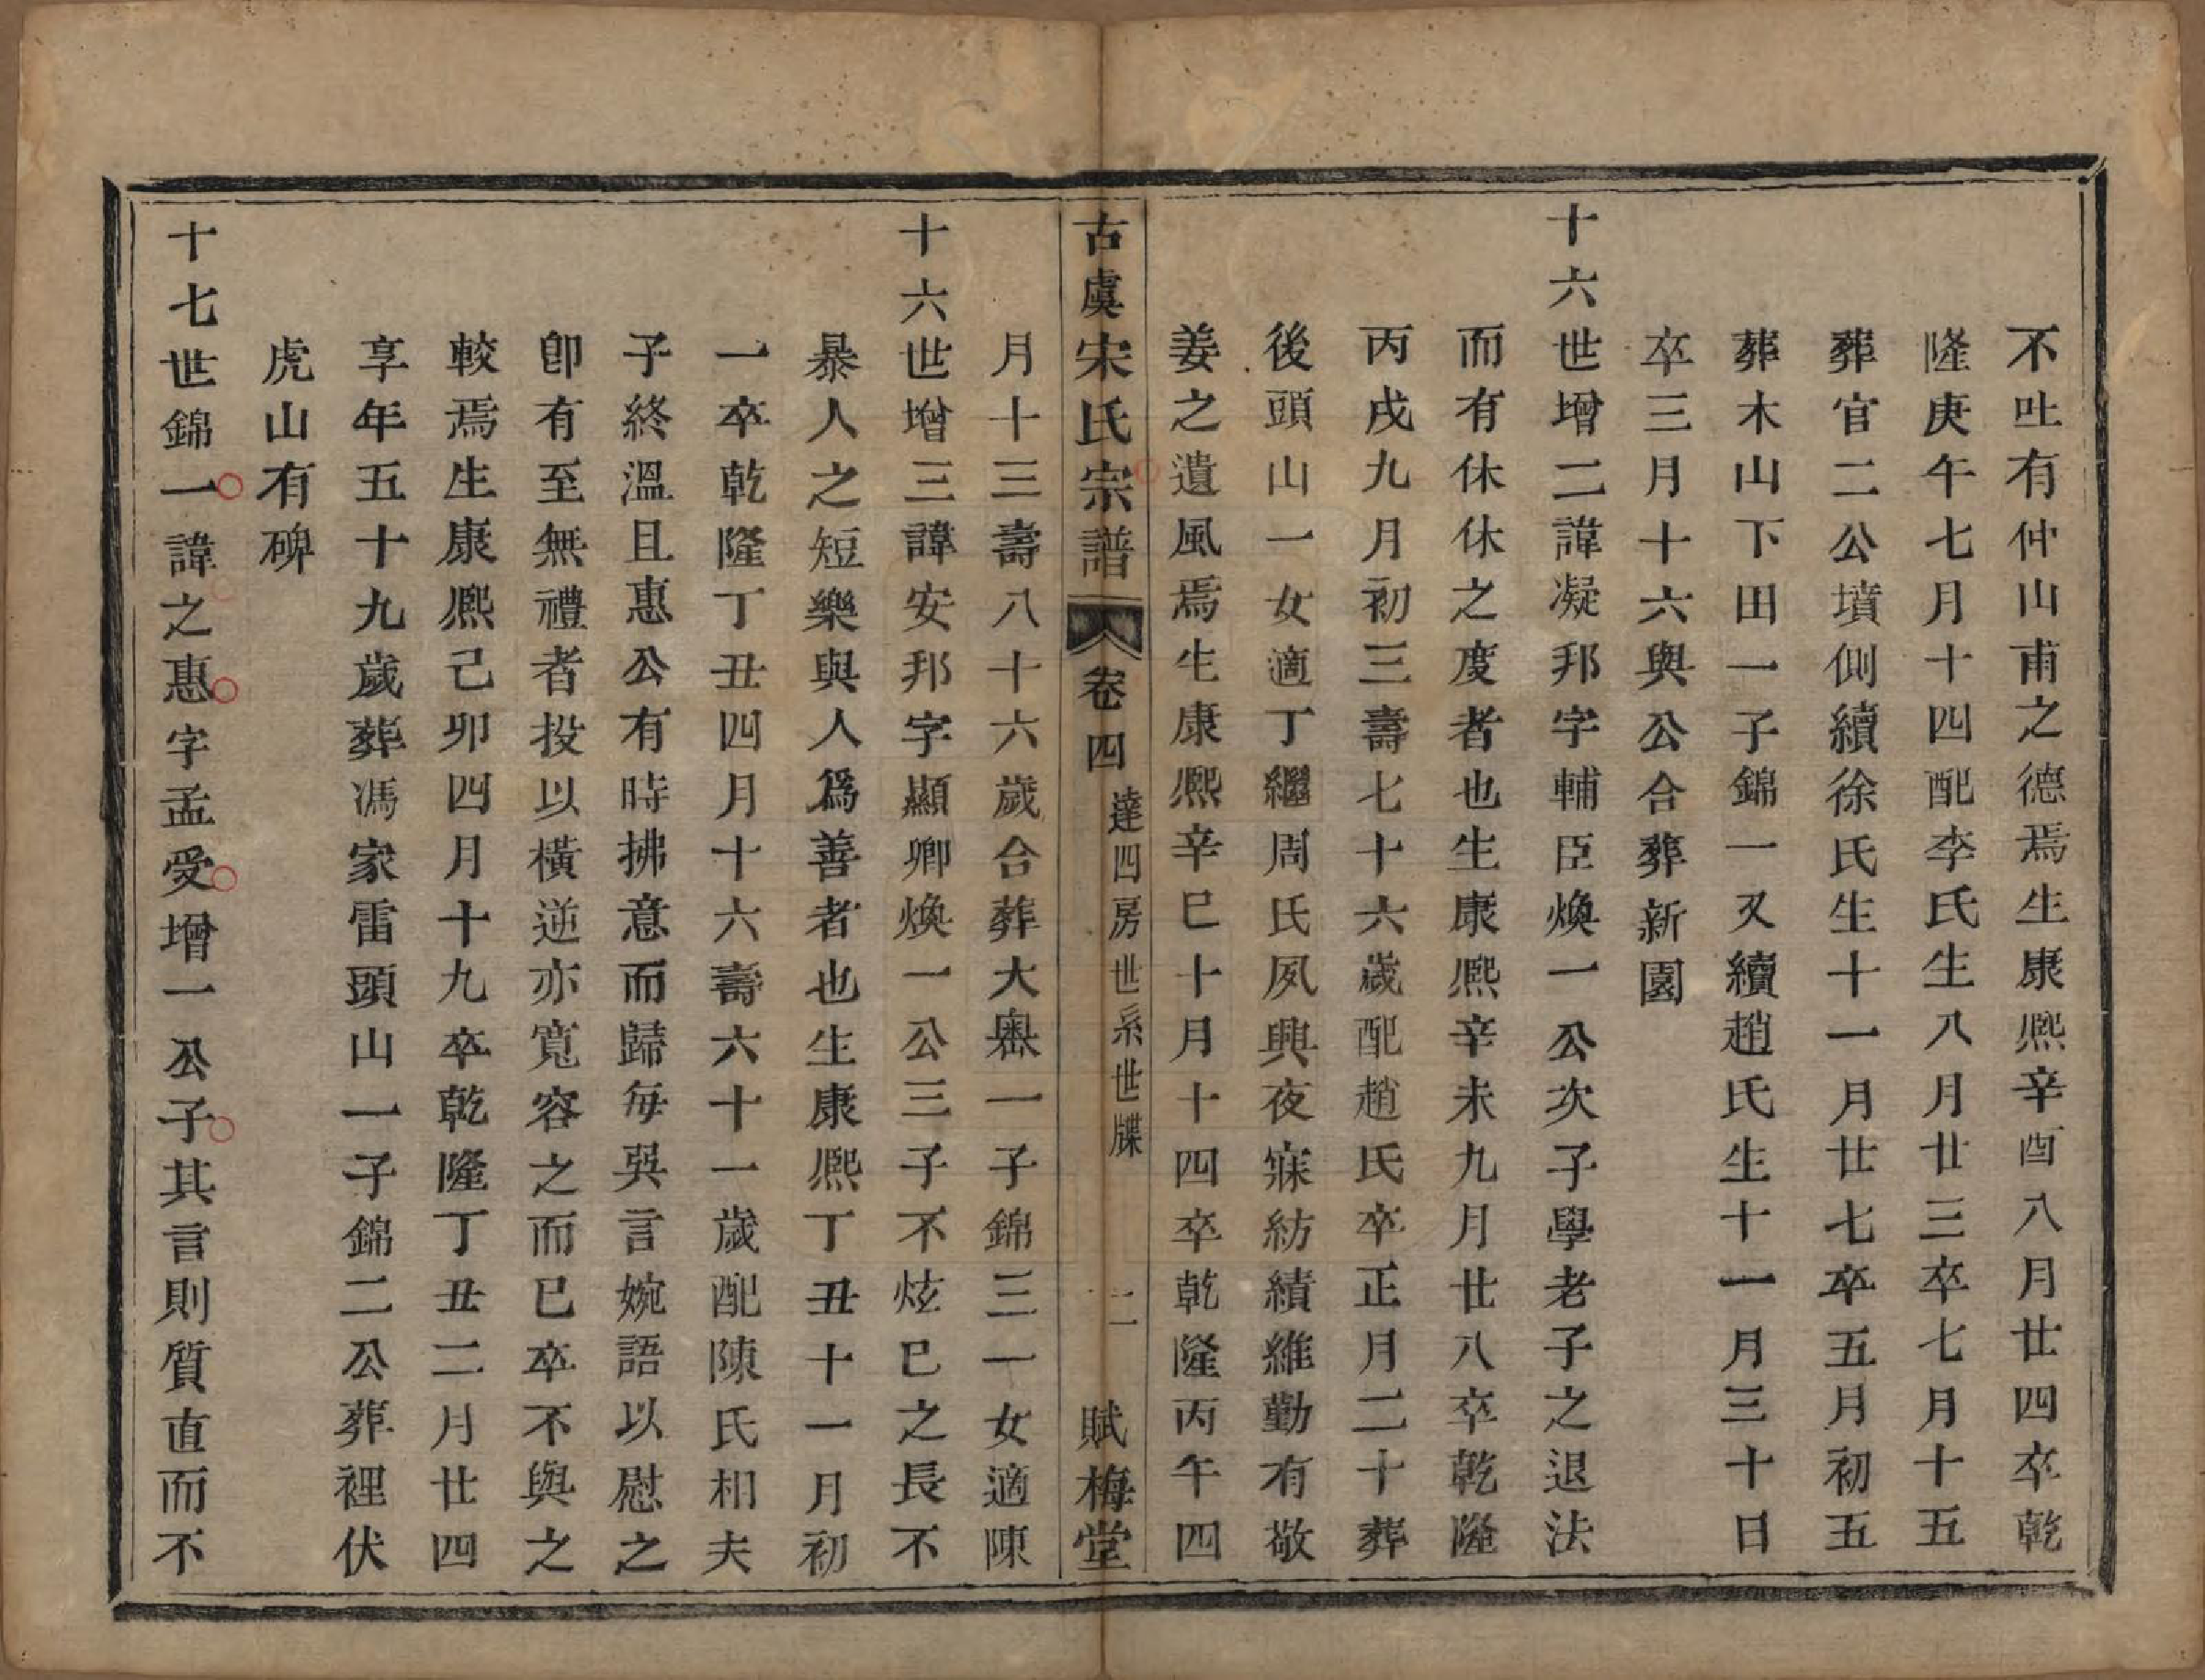 不吐有仲山甫之德焉生康熙辛酉八月廿四卒乾
隆庚午七月十四配李氏生八月廿三卒七月十五
葬官二公墳側續徐氏生十一月廿七卒五月初五
葬木山下田一子錦一又續趙氏生十一月三十日
卒三月十六與公合葬新園
十六世增二諱凝邦字輔臣煥一公次子學老子之退法
而有休休之度者也生康熙辛未九月廿八卒乾隆
丙戌九月初三壽七十六歲配趙氏卒正月二十葬
後頭山一女適丁繼周氏夙興夜寐紡績維勤有敬
姜之遺風焉生康熙辛巳十月十四卒乾隆丙午四
古虞宋氏宗譜 卷四 達四房世系世牒 二 賦梅堂
月十三壽八十六歲合葬大奧一子錦三一女適陳
十六世增三諱安邦字顯卿煥一公三子不炫已之長不
暴人之短樂與人為善者也生康熙丁丑十一月初
一卒乾隆丁丑四月十六壽六十一歲配陳氏相夫
子終溫且惠公有時拂意而歸每吳言婉語以慰之
卽有至無禮者投以橫逆亦寬容之而已卒不與之
較焉生康熙己卯四月十九卒乾隆丁丑二月廿四
享年五十九歲葬馮家雷頭山一子錦二公葬裡伏
虎山有碑
十七世錦一諱之惠字孟受增一公子其言則質直而不